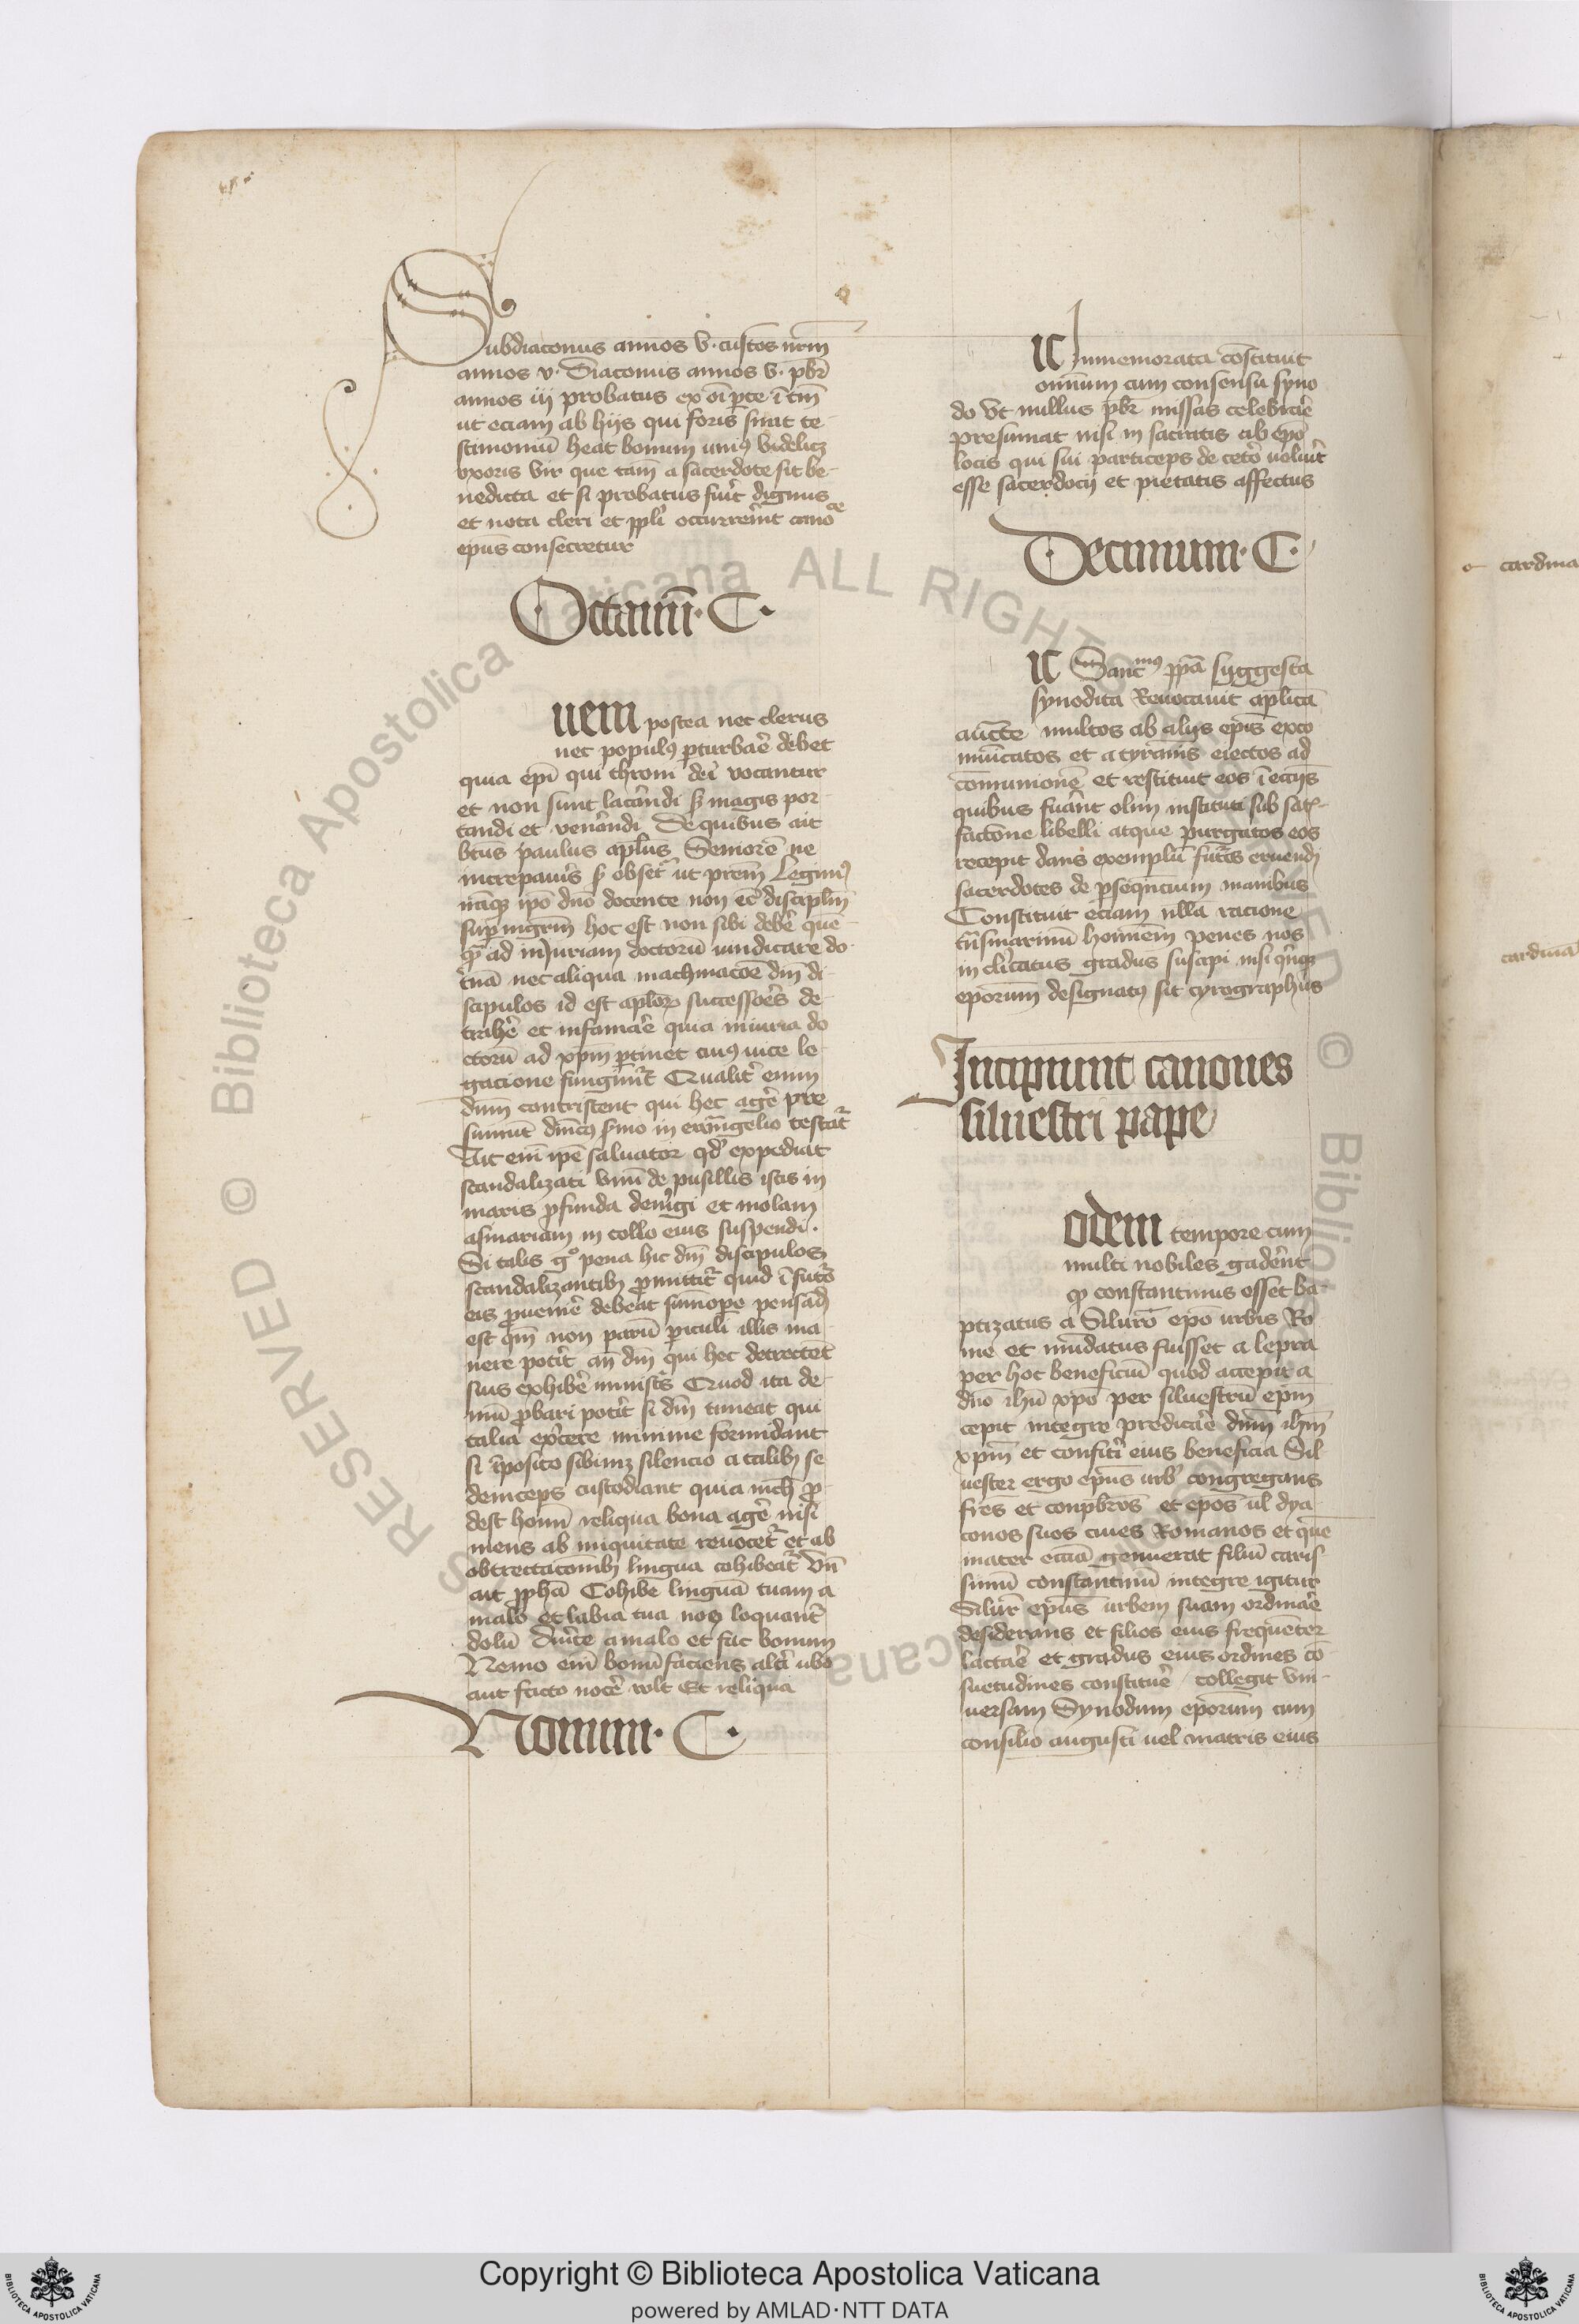 Subdiaconus annos v. custos mrm̄
annos v. Diaconus annos v. pbr̄
annos iij probatus ex oī pte ī tm̄
ut eciam ab hijs qui foris sunt te-
stimoniū heat bonum unius videlicz
vxoris vir que tam̄ a sacerdote sit be-
nedicta et si probatus fuīt dignus
et uota cleri et ppli occurrerīt
ep̄us consecretur
Octauū. C.
uem postea nec clerus
nec populus pturbaē debet
quia ep̄i qui throni dei vocantur
et non sunt lac̄andi s; magis por-
tandi et venāndi De quibus ait
btūs paulus apl̄us Seniorē ne
increpauis s; obsec̄ ut prem̄ Legimus
nāqz ip̄o dn̄o docente non eē discipl̄m
sup mgrm̄ hoc est non sibi debē quē-
q̄ ad iniuriam doctorū uindicare do-
nec aliqua machinacōe dn̄i di-
scipulos id est aplor̄ successoēs de-
trahē et infamaē quia iniuria do
ctorū ad xpm̄ ptinet cuius uice le-
gacione fungunt̄ Qualit̄ enim
dn̄m contristent qui hec agē pre
sumūt dn̄icus sermo in ewāngelio testat̄
Ait enī ip̄e saluator qd̄ expediat
scandalizati vnū de pusillis istis in
maris pfunda dem̄gi et molam
asinariam in collo eius suspendi.
Si talis g° pena hic dn̄i discipulos
scandalizantib; pmittit̄ quid ī futo
eis puenīe debeat sumope pensād
est qm̄ non parū piculi illis ma-
nere potīt an̄ dn̄m qui hec detrectēt
suis exhibē minist̄s Quod ita de-
mū pbari potīt si dn̄m timeat qui
talia exc̄ere minime formidant
si īposito sibimz silencio a talib; se
deinceps custodiant quia nich̄ p-
dest hōmi reliqua bona agē nisi
mens ab iniquitate reuocet̄ et ab
obtrectacōnib; lingua cohibeat̄ Vn̄
ait pph̄a Cohibe linguā tuam a
malo et labia tua ne loquant̄
dolū diūte a malo et fac bonum
Nemo enī bonū faciens alt̄i ūbo
aut facto nocē volt Et reliqua
Nonum. C.
IC Inmemorata cōstituit
omnium cum consensu syno
do vt nullus pbr̄ missas celebraē
presumat nisi in sacratis ab ep̄o
locis qui sui particeps de cet̄o uoluīt
esse sacerdocij et pietatis affectus
Decimum. C.
IC Sanctimus ppa suggesta
synodica Reuocauit aplica
auctte multos ab alijs ep̄is exco
muīcatos et a tyrānis eiectos ad
cōmunionē et restituit eos ī ecc̄ijs
quibus fuānt olim instituti sub satis-
factōne libelli atque purgatos eos
recepit dans exemplū fut̄is eruendj
sacerdotes de pseq̄ncium manibus
Constituit eciam nlla racione
tn̄smarinū hominem penes nos
in cl̄icatus gradus suscipi nisi q̄nqz
ep̄orum designatus sit cyrographus
Incipiunt canones
siluestri pape
odem tempore cum
multi nobiles gadēnt
q constantinus esset ba-
ptizatus a Siluro ep̄o urbis Ro
me et mūdatus fuisset a lepra
per hoc beneficiū quod accepit a
dn̄o ihū xpo per siluestrū ep̄m
cepit integre predicaē dn̄m ihm̄
xpm̄ et confitī eius beneficia Sil
uester ergo ep̄us urb' congregans
fr̄es et conpbros et ep̄os ul dya
conos suos ciues Romanos et quē
mater ecciā genuerat filiū caris
simū constantinū integre igitur
Silur̄ ep̄us urbem suam ordinaē
desiderans et filios eius frequēter
lactaē et gradus eius ordines cō
suetudines constituē collegit vni-
uersam Synodum ep̄orum cum
consilio augusti uel matris eius
cardina
cardina
Copyright © Biblioteca Apostolica Vaticana
powered by AMLAD·NTT DATA
© Biblioteca Apostolica Vaticana ALL RIGHTS RESERVED